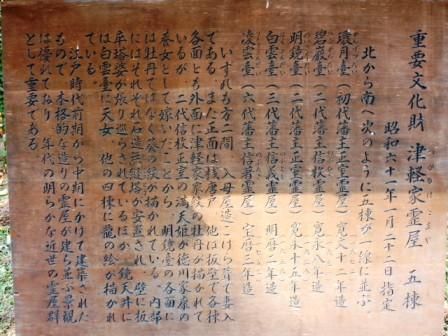 重要文化財 津軽家霊屋 五棟
昭和六十一年一月二十二日指定
北から南へ次のように五棟が一線に並ぶ。
環月臺(初代藩主正室霊屋)寛文十二年造
碧巖臺(二代藩主信枚霊屋)寛永八年造
明鏡臺(二代藩主正室霊屋)寛永十五年造
白雲臺(三代藩主信義霊屋)明暦二年造
凌雲臺(六代藩主信著霊屋)宝暦三年造
いずれも方二間、入母屋造こけら葺で妻入
である。また正面は桟唐戸、他は板壁で各棟
各面とも外面に津軽家家紋の牡丹が描かれて
いるが、二代信枚正室の満天姫が徳川家康の
養女として嫁いだことから、明鏡臺の各面に
は牡丹ではなく葵の紋が描かれている。内部
にはそれぞれ石造無縫塔が安置され、壁に板
卒塔婆が張り巡らされているほか、鏡天井に
は白雲臺に天女、他の四棟に龍の絵が描かれ
ている。
江戸時代前期から中期にかけて建築された
もので、本格的な造りの霊屋が建ち並ぶ景観
は優れており、年代の明らかな近世の霊屋群
として重要である